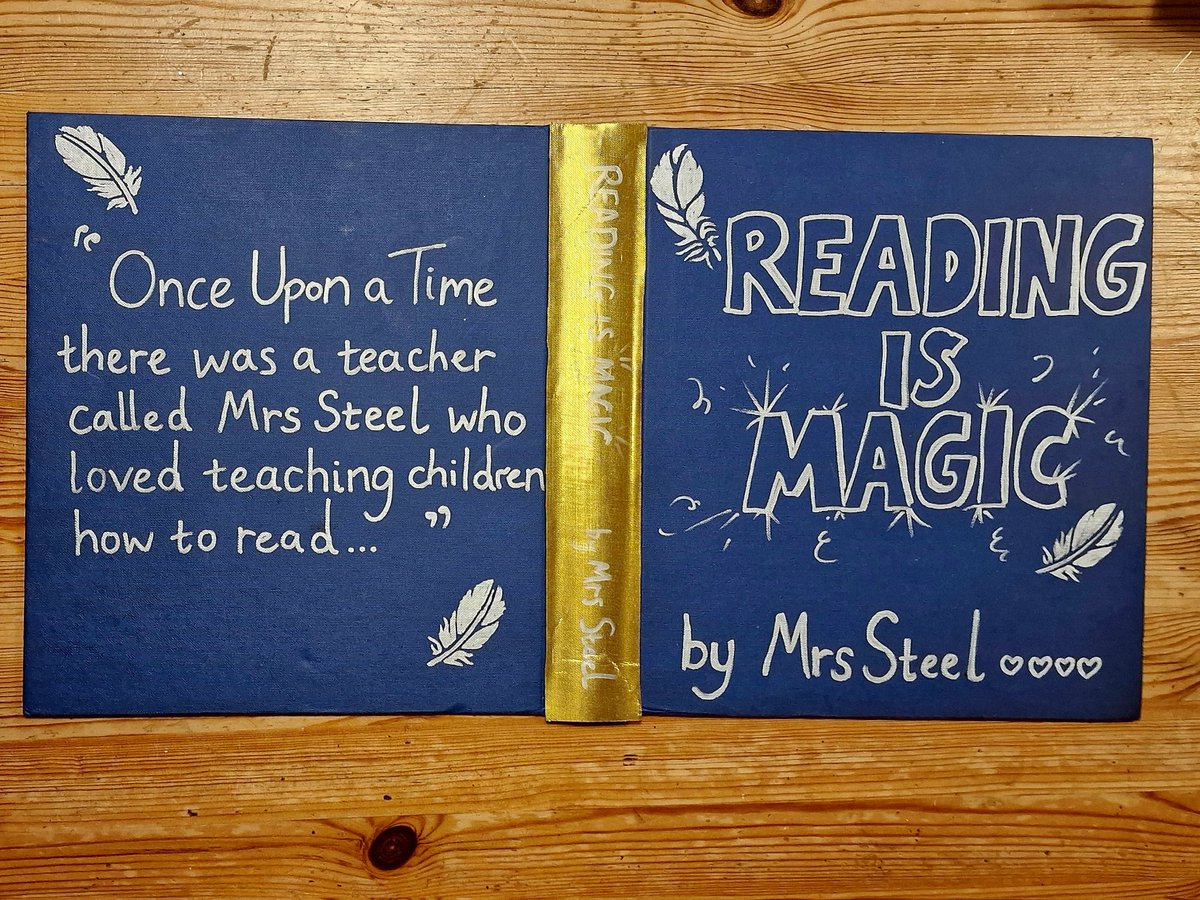 “Once Upon a Time
there was a teacher
called Mrs Steel who
loved teaching children
how to read... ”
READING IS MAGIC by Mrs Steel
READING
IS
MAGIC
by Mrs Steel ♡♡♡♡